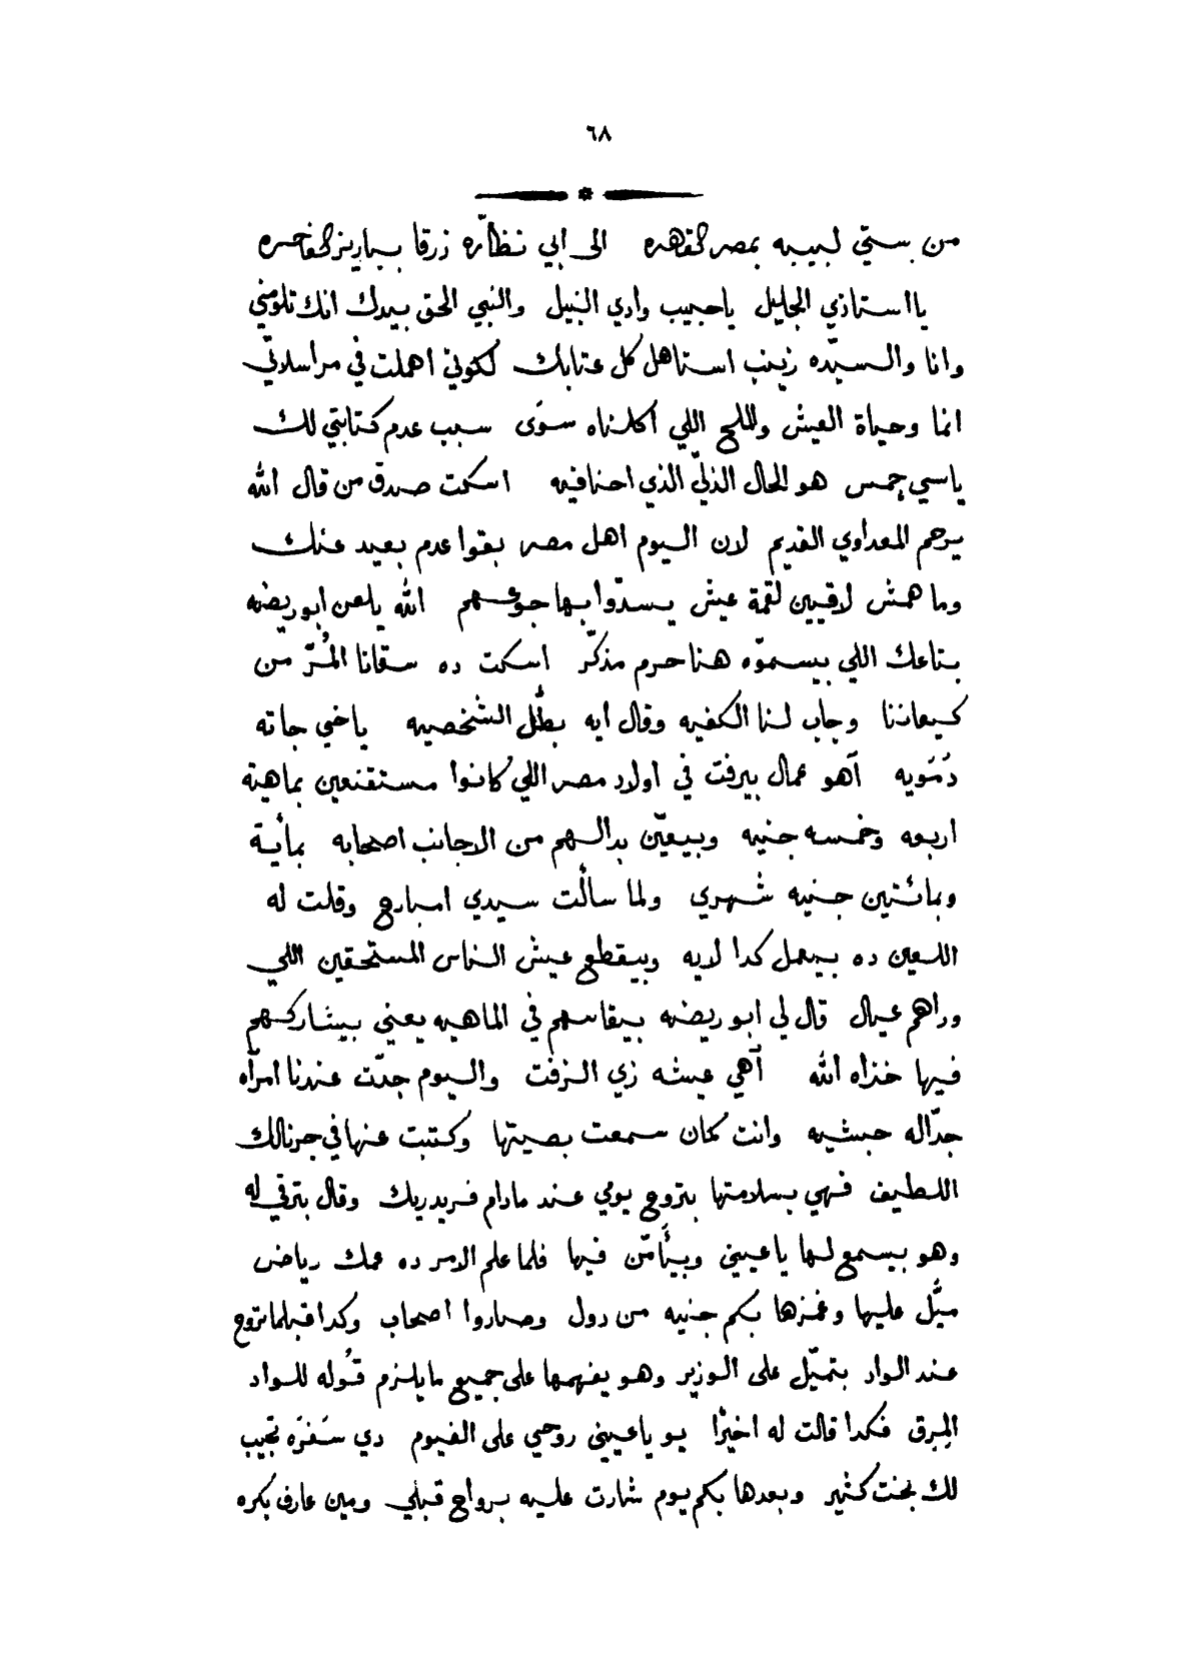 ٦٨
من ستي لبيبه بمصر القاهره الى ابي نظّاره زرقا بباريز الفاخره
يا استاذي الجليل ياحبيب وادي النيل والنبي الحق بيدك انك تلومني
وانا والسيّده زينب استاهل كل عتابك لكوني اهملت في مراسلاتي
انما وحياة العيش والملح اللي اكلناه سوَى سبب عدم كتابتي لك
ياسي جمس هو الحال الذلي الذي احنا فيه اسكت صدق من قال الله
يرحم المعداوي القديم لان اليوم اهل مصر بقوا عدم بعيد عنك
وما همش لاقيين لقمة عيش يسدّوا بها جوعهم الله يلعن ابو ريضه
بتاعك اللي بيسموّه هنا حرم مذكّر اسكت ده سقانا المُرّ من
كيعاننا وجاب لنا الكفيه وقال ايه بطّل الشخصيه ياخي جاته
دَمَويه آهو عمال بيرفت في اولاد مصر اللي كانوا مستقنعين بماهية
اربعه وخمسه جنيه وبيعيّن بدالهم من الاجانب اصحابه بمأية
وبمائتين جنيه شهري ولما سألت سيدي امبارح وقلت له
اللعين ده بيعمل كدا لايه وبيقطع عيش الناس المستحقين اللي
وراهم عيال قال لي ابو ريضه بيقاسهم في الماهيه يعني بيشاركهم
فيها خذاه الله آهي عيشه زي الزفت واليوم جدّت عندنا امرأه
جدّاله حبشيه وانت كان سمعت بصيتها وكتبت عنها في جرنالك
اللطيف فهي بسلامتها بتروح يومي عند مادام فريدريك وقال بترقي له
وهو بيسمع لها ياعيني وبيأمّن فيها فلما علم الامر ده عمك رياض
ميّل عليها وغمزها بكم جنيه من دول وصاروا اصحاب وكدا قبلما تروح
عند الواد بتميّل على الوزير وهو يفهمها على جميع مايلزم قوله للواد
المِرِق فكدا قالت له اخيرًا يو ياعيني روحي على الفيوم دي سَفرَه تجيب
لك بخت كثير وبعدها بكم يوم شارت عليه برواح قبلي ومين عارف بكره